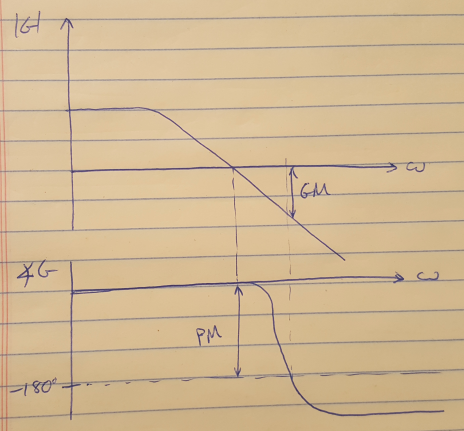 |G|
ω
GM
∡G
ω
PM
-180°